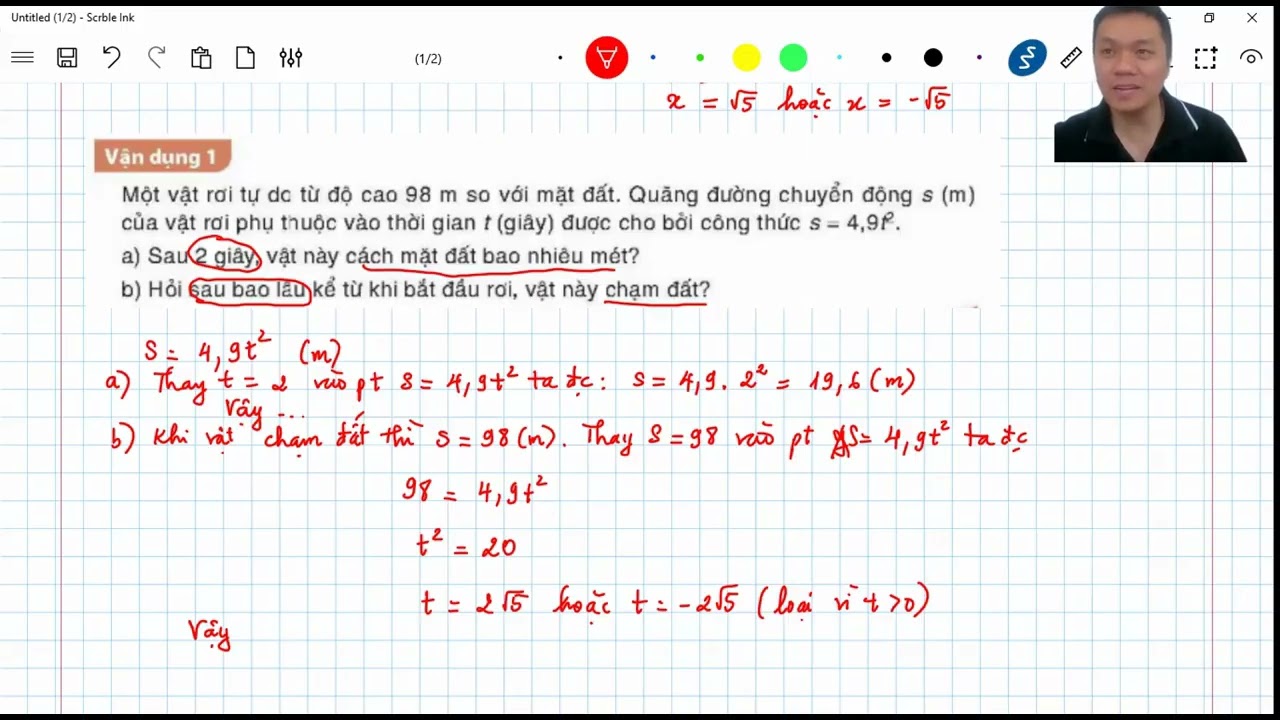 Untitled (1/2) - Scrble Ink
(1/2)
x = √5 hoặc x = -√5
Vận dụng 1
Một vật rơi tự dc từ độ cao 98 m so với mặt đất. Quãng đường chuyển động s (m)
của vật rơi phụ thuộc vào thời gian t (giây) được cho bởi công thức s = 4,9t².
a) Sau 2 giây, vật này cách mặt đất bao nhiêu mét?
b) Hỏi sau bao lâu kể từ khi bắt đầu rơi, vật này chạm đất?
S = 4,9t² (m)
a) Thay t = 2 vào pt S = 4,9t² ta đc: S = 4,9. 2² = 19,6 (m)
Vậy ...
b) Khi vật chạm đất thì S = 98 (m). Thay S = 98 vào pt S = 4,9t² ta đc
98 = 4,9t²
t² = 20
t = 2√5 hoặc t = -2√5 (loại vì t >0)
Vậy